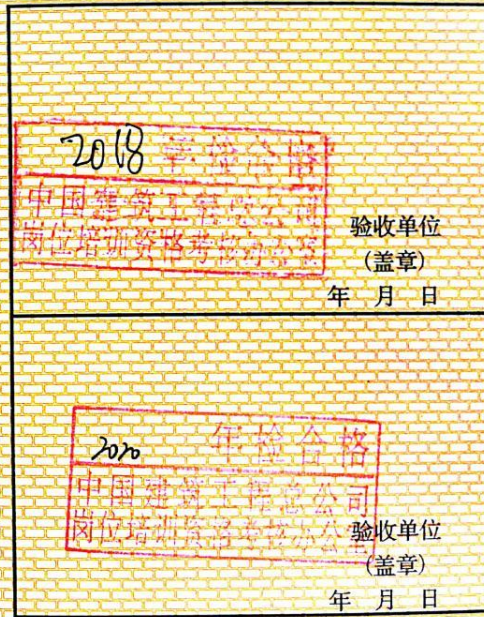 2018 年检合格
中国建筑工程总公司
岗位培训资格考核办公室
验收单位
(盖章)
年 月 日
2020 年检合格
中国建筑工程总公司
岗位培训资格考核办公室
验收单位
(盖章)
年 月 日